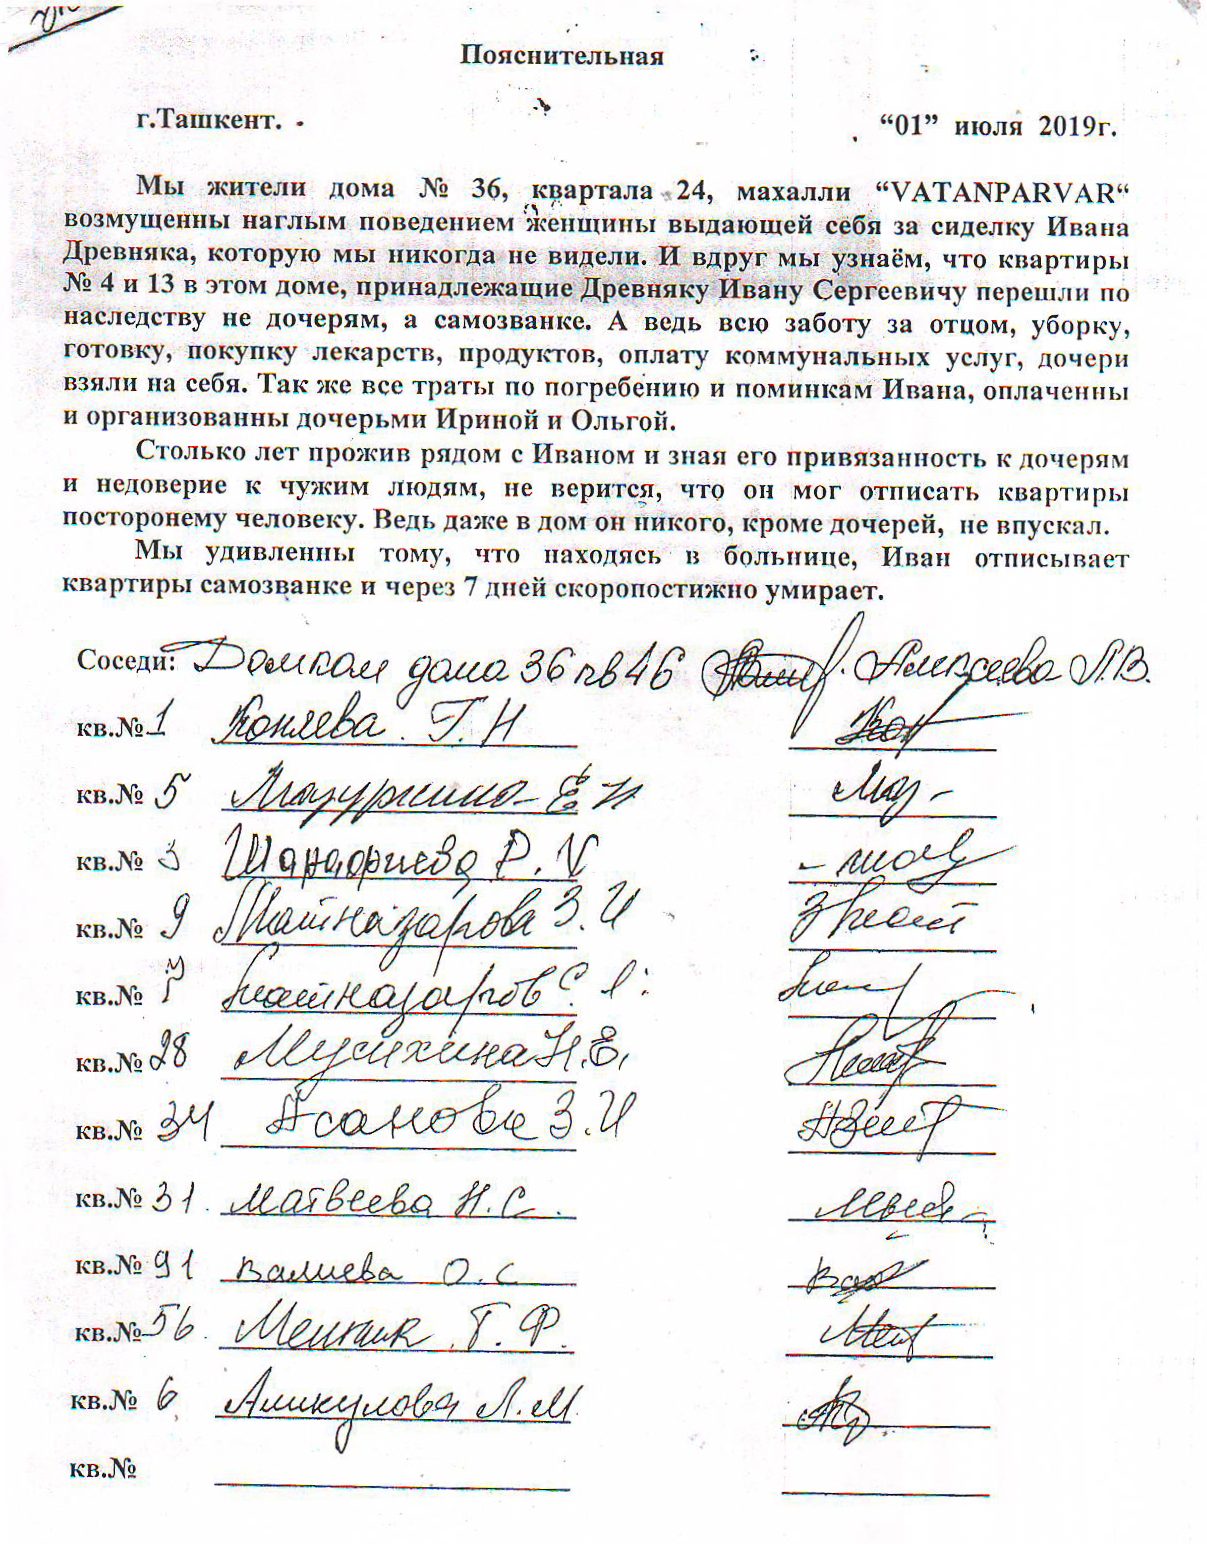 Пояснительная
г.Ташкент.
“01” июля 2019г.
Мы жители дома № 36, квартала 24, махалли “VATANPARVAR“
возмущенны наглым поведением женщины выдающей себя за сиделку Ивана
Древняка, которую мы никогда не видели. И вдруг мы узнаём, что квартиры
№ 4 и 13 в этом доме, принадлежащие Древняку Ивану Сергеевичу перешли по
наследству не дочерям, а самозванке. А ведь всю заботу за отцом, уборку,
готовку, покупку лекарств, продуктов, оплату коммунальных услуг, дочери
взяли на себя. Так же все траты по погребению и поминкам Ивана, оплаченны
и организованны дочерьми Ириной и Ольгой.
Столько лет прожив рядом с Иваном и зная его привязанность к дочерям
и недоверие к чужим людям, не верится, что он мог отписать квартиры
посторонему человеку. Ведь даже в дом он никого, кроме дочерей, не впускал.
Мы удивленны тому, что находясь в больнице, Иван отписывает
квартиры самозванке и через 7 дней скоропостижно умирает.
Соседи: Домком дома 36 кв 46 Алексеева Л.В.
кв.№ 1 Коняева Г.Н
кв.№ 5 Е И
кв.№ 3 Р.
кв.№ 9 Матназарова З.И
кв.№ Матназаров С.
кв.№ 28 Мусихина Н.Е.
кв.№ 34 Асанова З.И
кв.№ 31. Матвеева Н.С.
кв.№ 91 Валиева О.С
кв.№ 56. Т.Ф.
кв.№ 6 Аликулова Л.М.
кв.№